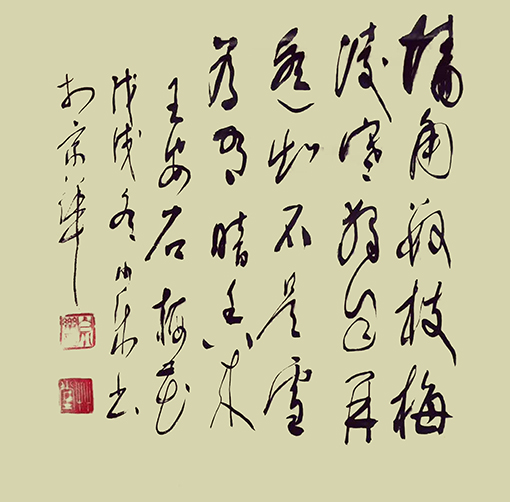 墙角数枝梅
凌寒独自开
遥知不是雪
为有暗香来
王安石梅花
戊戌冬月
书
于京华